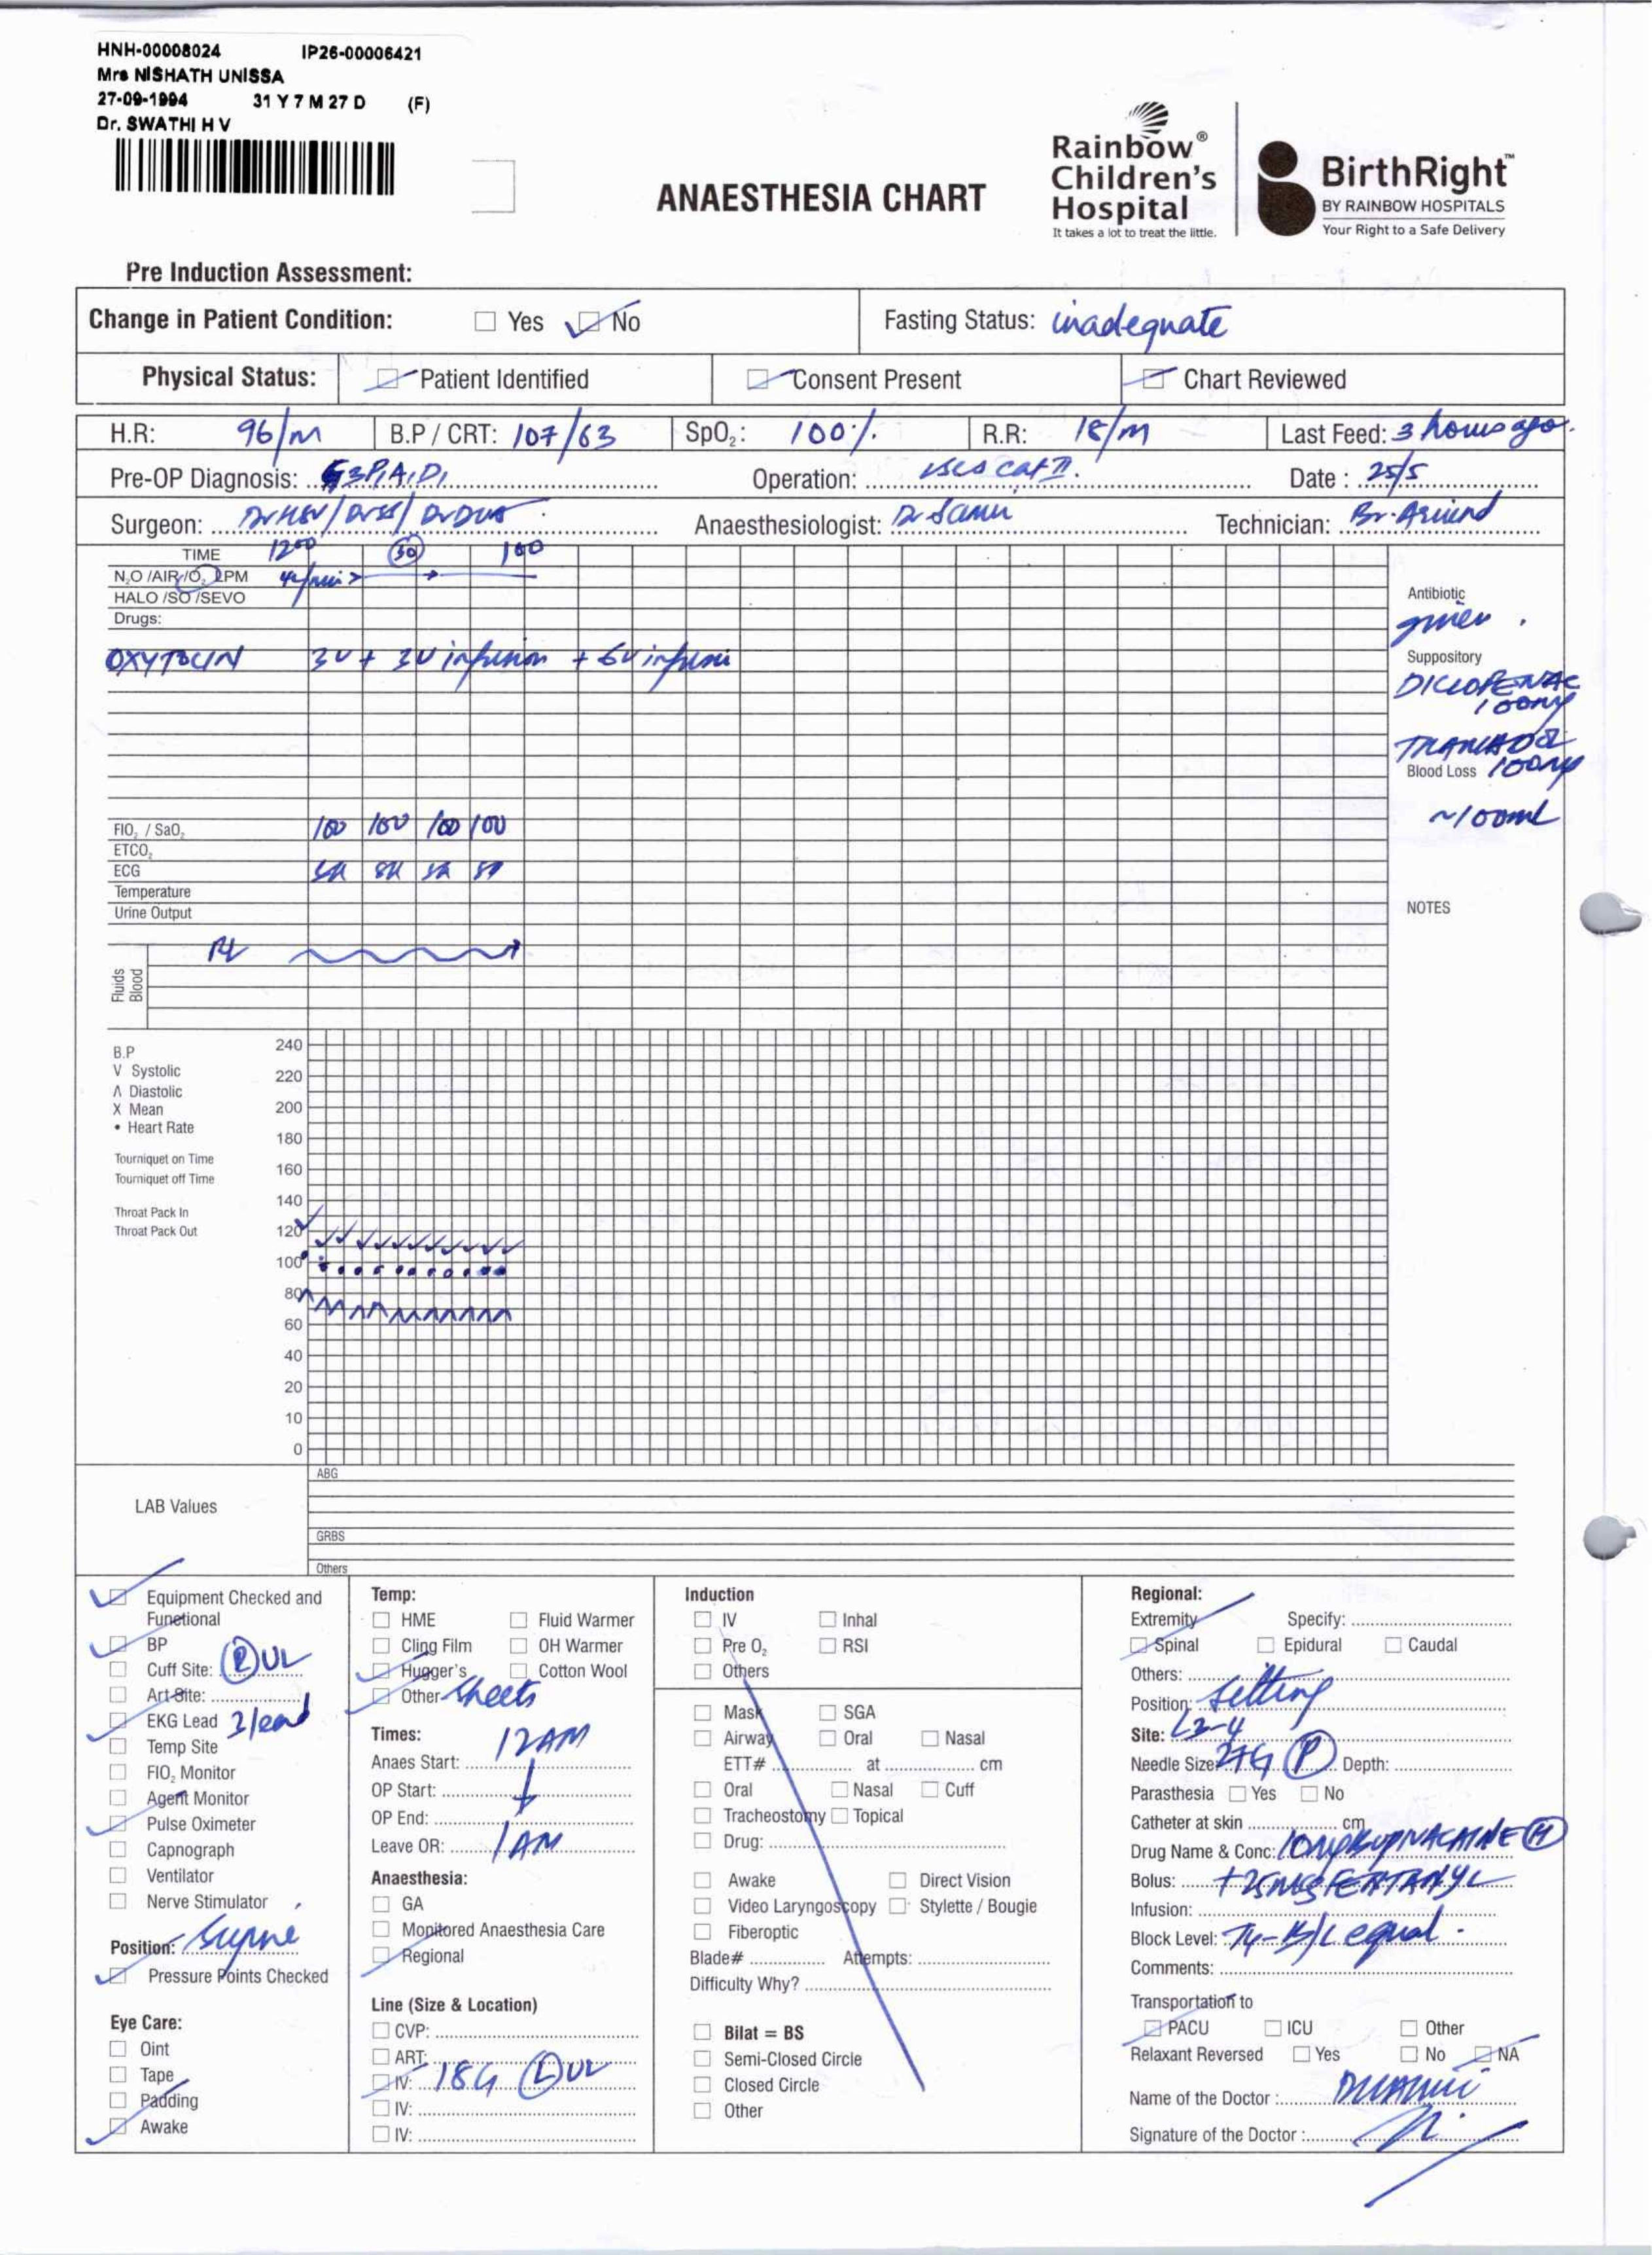 HNH-00008024 IP26-00006421
Mrs NISHATH UNISSA
27-09-1994 31 Y 7 M 27 D (F)
Dr. SWATHI H V
ANAESTHESIA CHART
Rainbow® Children's Hospital
It takes a lot to treat the little.
BirthRight™
BY RAINBOW HOSPITALS
Your Right to a Safe Delivery
Pre Induction Assessment:
Change in Patient Condition: Yes No Fasting Status: inadequate
Physical Status: Patient Identified Consent Present Chart Reviewed
H.R: 96/m B.P / CRT: 107/63 SpO₂: 100% R.R: 18/m Last Feed: 3 hours ago.
Pre-OP Diagnosis: G3P1A1D1 Operation: LSCS Cat II. Date : 25/5
Surgeon: Anaesthesiologist: Technician: Br. Arvind
TIME 1200 30 100
N₂O /AIR /O₂ LPM
HALO /SO /SEVO
Drugs:
OXYTOCIN 3U + 3U infusion + 6U infusion
Antibiotic
given.
Suppository
DICLOFENAC
100mg
TRAMADOL
100mg
Blood Loss
~100ml
FIO₂ / SaO₂ 100 100 100 100
ETCO₂
ECG SR SR SR SR
Temperature
Urine Output
NOTES
Fluids
Blood
RL
B.P
V Systolic
Λ Diastolic
X Mean
• Heart Rate
Tourniquet on Time
Tourniquet off Time
Throat Pack In
Throat Pack Out
240
220
200
180
160
140
120
100
80
60
40
20
10
0
LAB Values
ABG
GRBS
Others
Equipment Checked and
Functional
BP
Cuff Site: (R) UL
Art-Site:
EKG Lead 3 lead
Temp Site
FIO₂ Monitor
Agent Monitor
Pulse Oximeter
Capnograph
Ventilator
Nerve Stimulator
Position: Supine
Pressure Points Checked
Eye Care:
Oint
Tape
Padding
Awake
Temp:
HME Fluid Warmer
Cling Film OH Warmer
Hugger's Cotton Wool
Other Sheets
Times:
Anaes Start: 12AM
OP Start:
OP End:
Leave OR: 1AM
Anaesthesia:
GA
Monitored Anaesthesia Care
Regional
Line (Size & Location)
CVP:
ART:
IV: 18G (L) UL
IV:
IV:
Induction
IV Inhal
Pre O₂ RSI
Others
Mask SGA
Airway Oral Nasal
ETT# at cm
Oral Nasal Cuff
Tracheostomy Topical
Drug:
Awake Direct Vision
Video Laryngoscopy Stylette / Bougie
Fiberoptic
Blade# Attempts:
Difficulty Why?
Bilat = BS
Semi-Closed Circle
Closed Circle
Other
Regional:
Extremity Specify:
Spinal Epidural Caudal
Others:
Position: Sitting
Site: L3-4
Needle Size: 27G (P) Depth:
Parasthesia Yes No
Catheter at skin cm
Drug Name & Conc: 10mg BUPIVACAINE (H)
Bolus: + 25mcg FENTANYL
Infusion:
Block Level: T4 - B/L equal.
Comments:
Transportation to
PACU ICU Other
Relaxant Reversed Yes No NA
Name of the Doctor :
Signature of the Doctor :